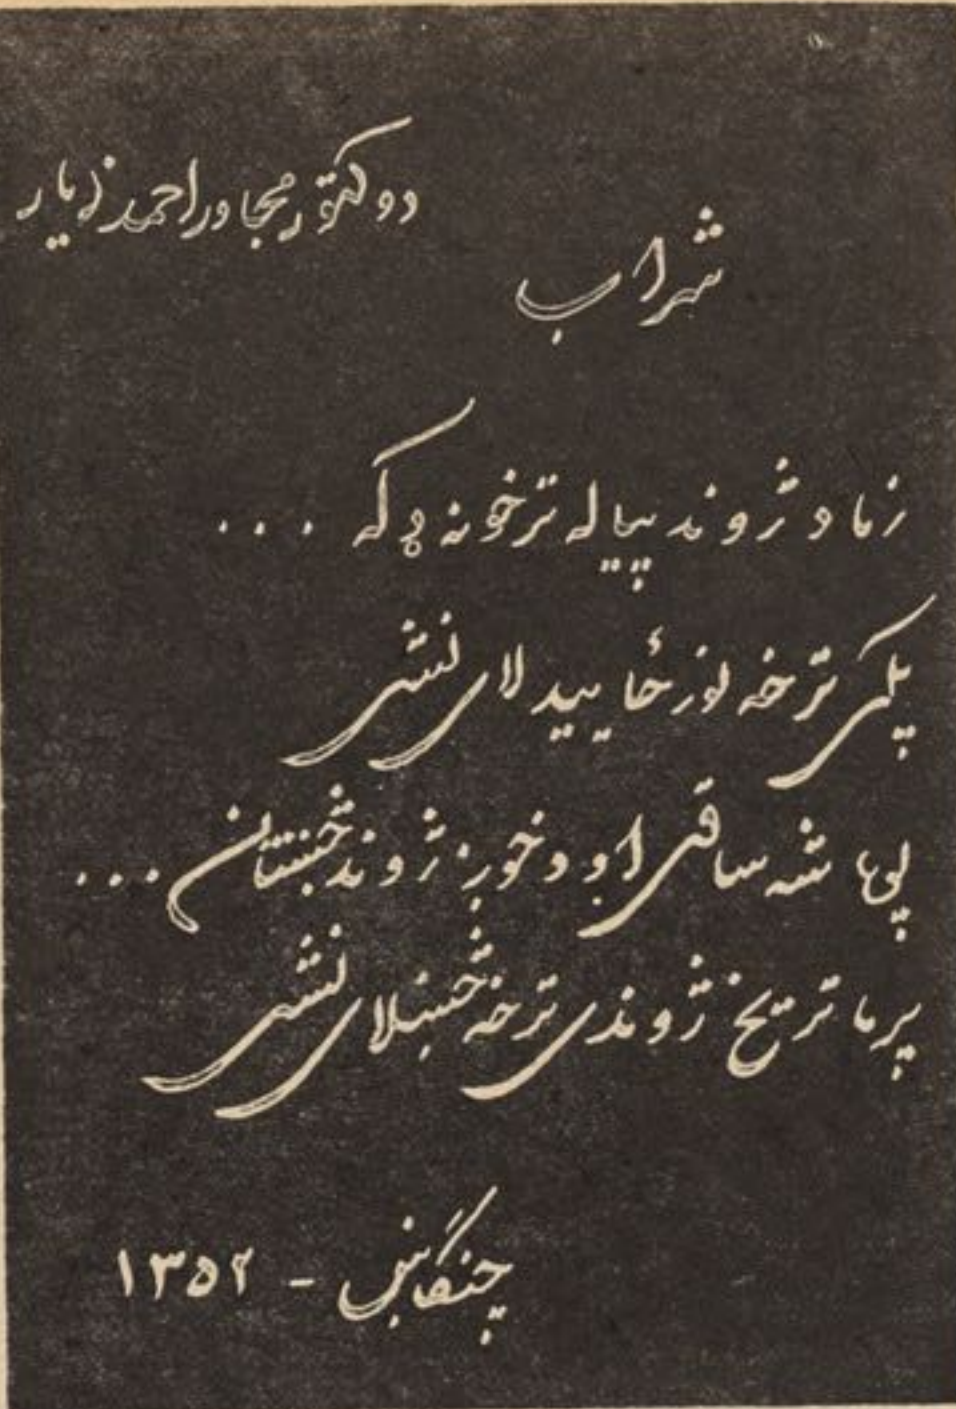 دوکتور مجاور احمد زیار
شراب
زما د ژوند پیاله ترخونه ډکه ...
پکې ترخه نور ځاییدلای نشی
پی ما شه ساقی او د خوږ ژوند ښتان ...
پر ما تریخ ژوندی ترخه لای نشی
چنګاښ - ۱۳۵۲